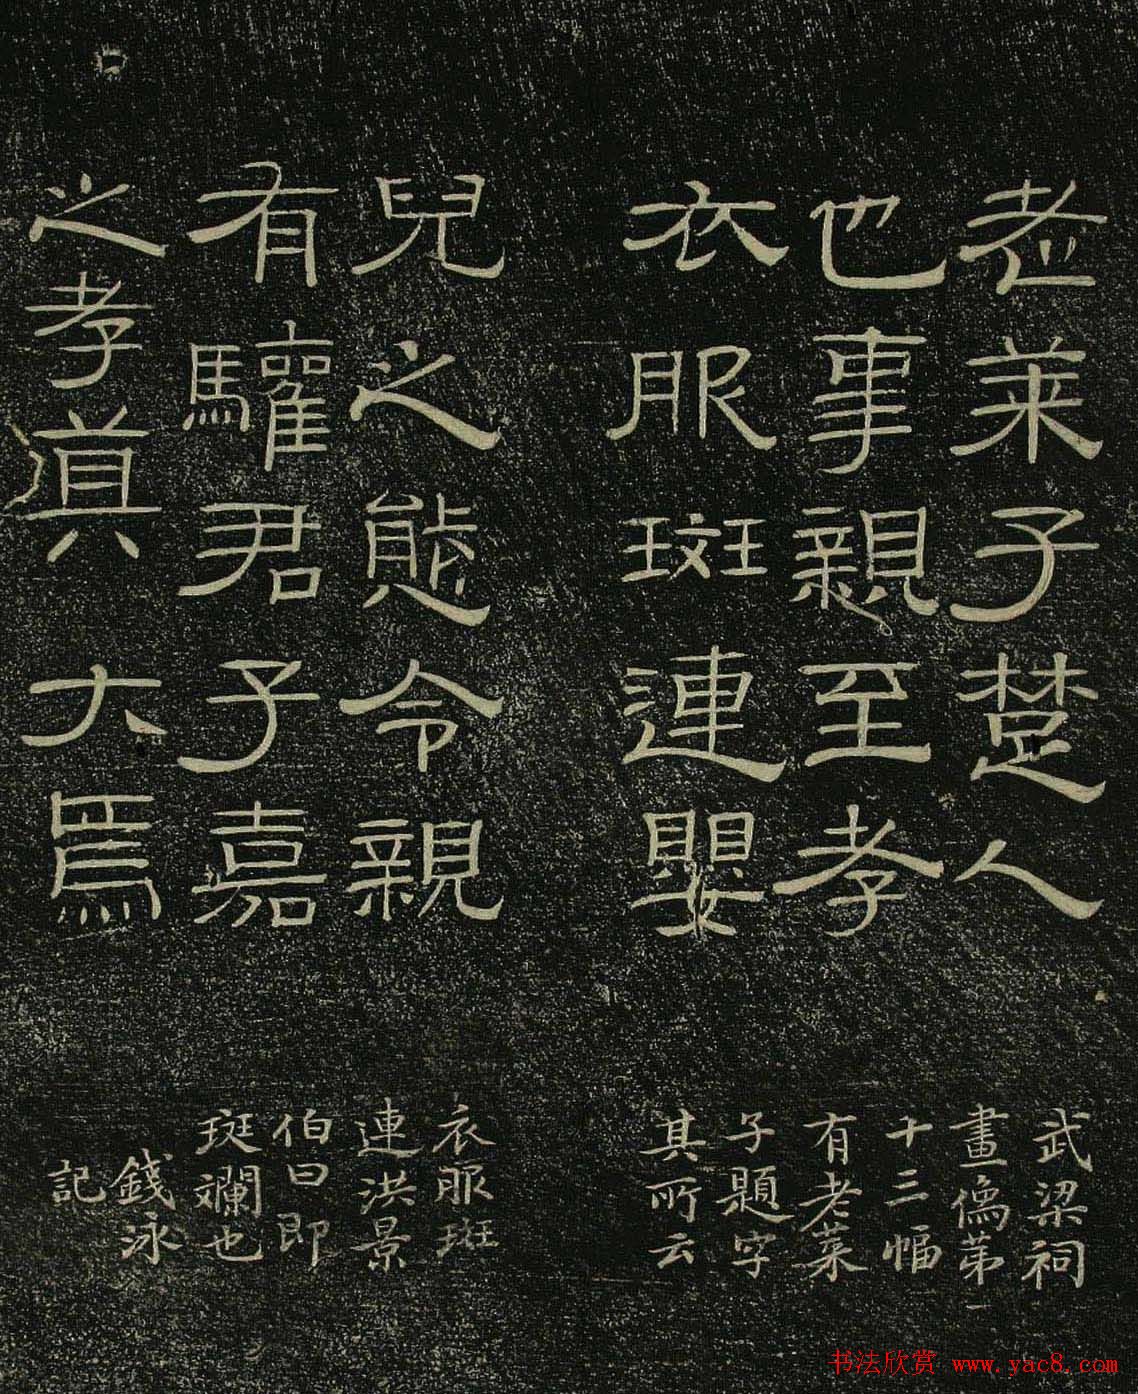 老萊子楚人
也事親至孝
衣服斑連嬰
兒之態令親
有驩君子嘉
之孝莫大焉
武梁祠
畫像第
十三幅
有老萊
子題字
其所云
衣服斑
連洪景
伯曰即
斑斕也
錢泳
記
书法欣赏 www.yac8.com